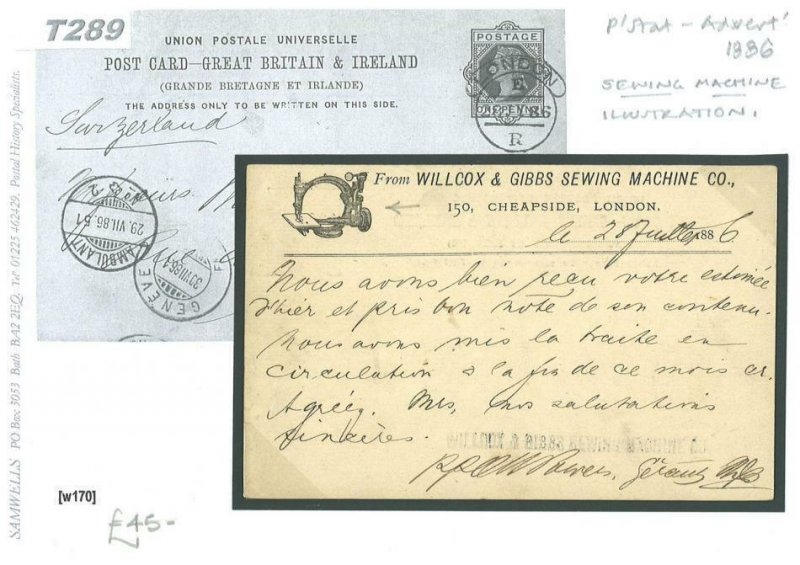 T289
P'Stat - Advert'
1886
SEWING MACHINE
ILLUSTRATION.
UNION POSTALE UNIVERSELLE
POST CARD—GREAT BRITAIN & IRELAND
(GRANDE BRETAGNE ET IRLANDE)
THE ADDRESS ONLY TO BE WRITTEN ON THIS SIDE.
POSTAGE
ONE PENNY
LONDON
E
86
R
Switzerland
Messieurs
AMBULANT
29.VII.86.51
GENÈVE
From WILLCOX & GIBBS SEWING MACHINE CO.,
150, CHEAPSIDE, LONDON.
le 28 Juillet 1886
Nous avons bien reçu votre estimée
d'hier et pris bon note de son contenu.
Nous avons mis la traite en
circulation à la fin de ce mois ct.
Agréez, Mrs, nos salutations
sincères.
WILLCOX & GIBBS SEWING MACHINE CO
Gérant
SAMWELLS PO Box 3053 Bath BA2 2EQ. Tel 01225 462429. Postal History Specialists.
[w170]
£45-